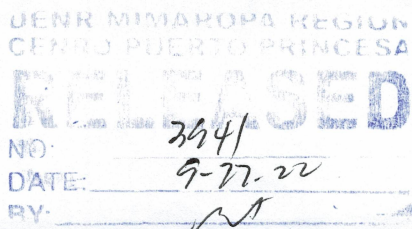 DENR MIMAROPA REGION
CENRO PUERTO PRINCESA
RELEASED
NO: 3941
DATE: 9-27-22
BY: